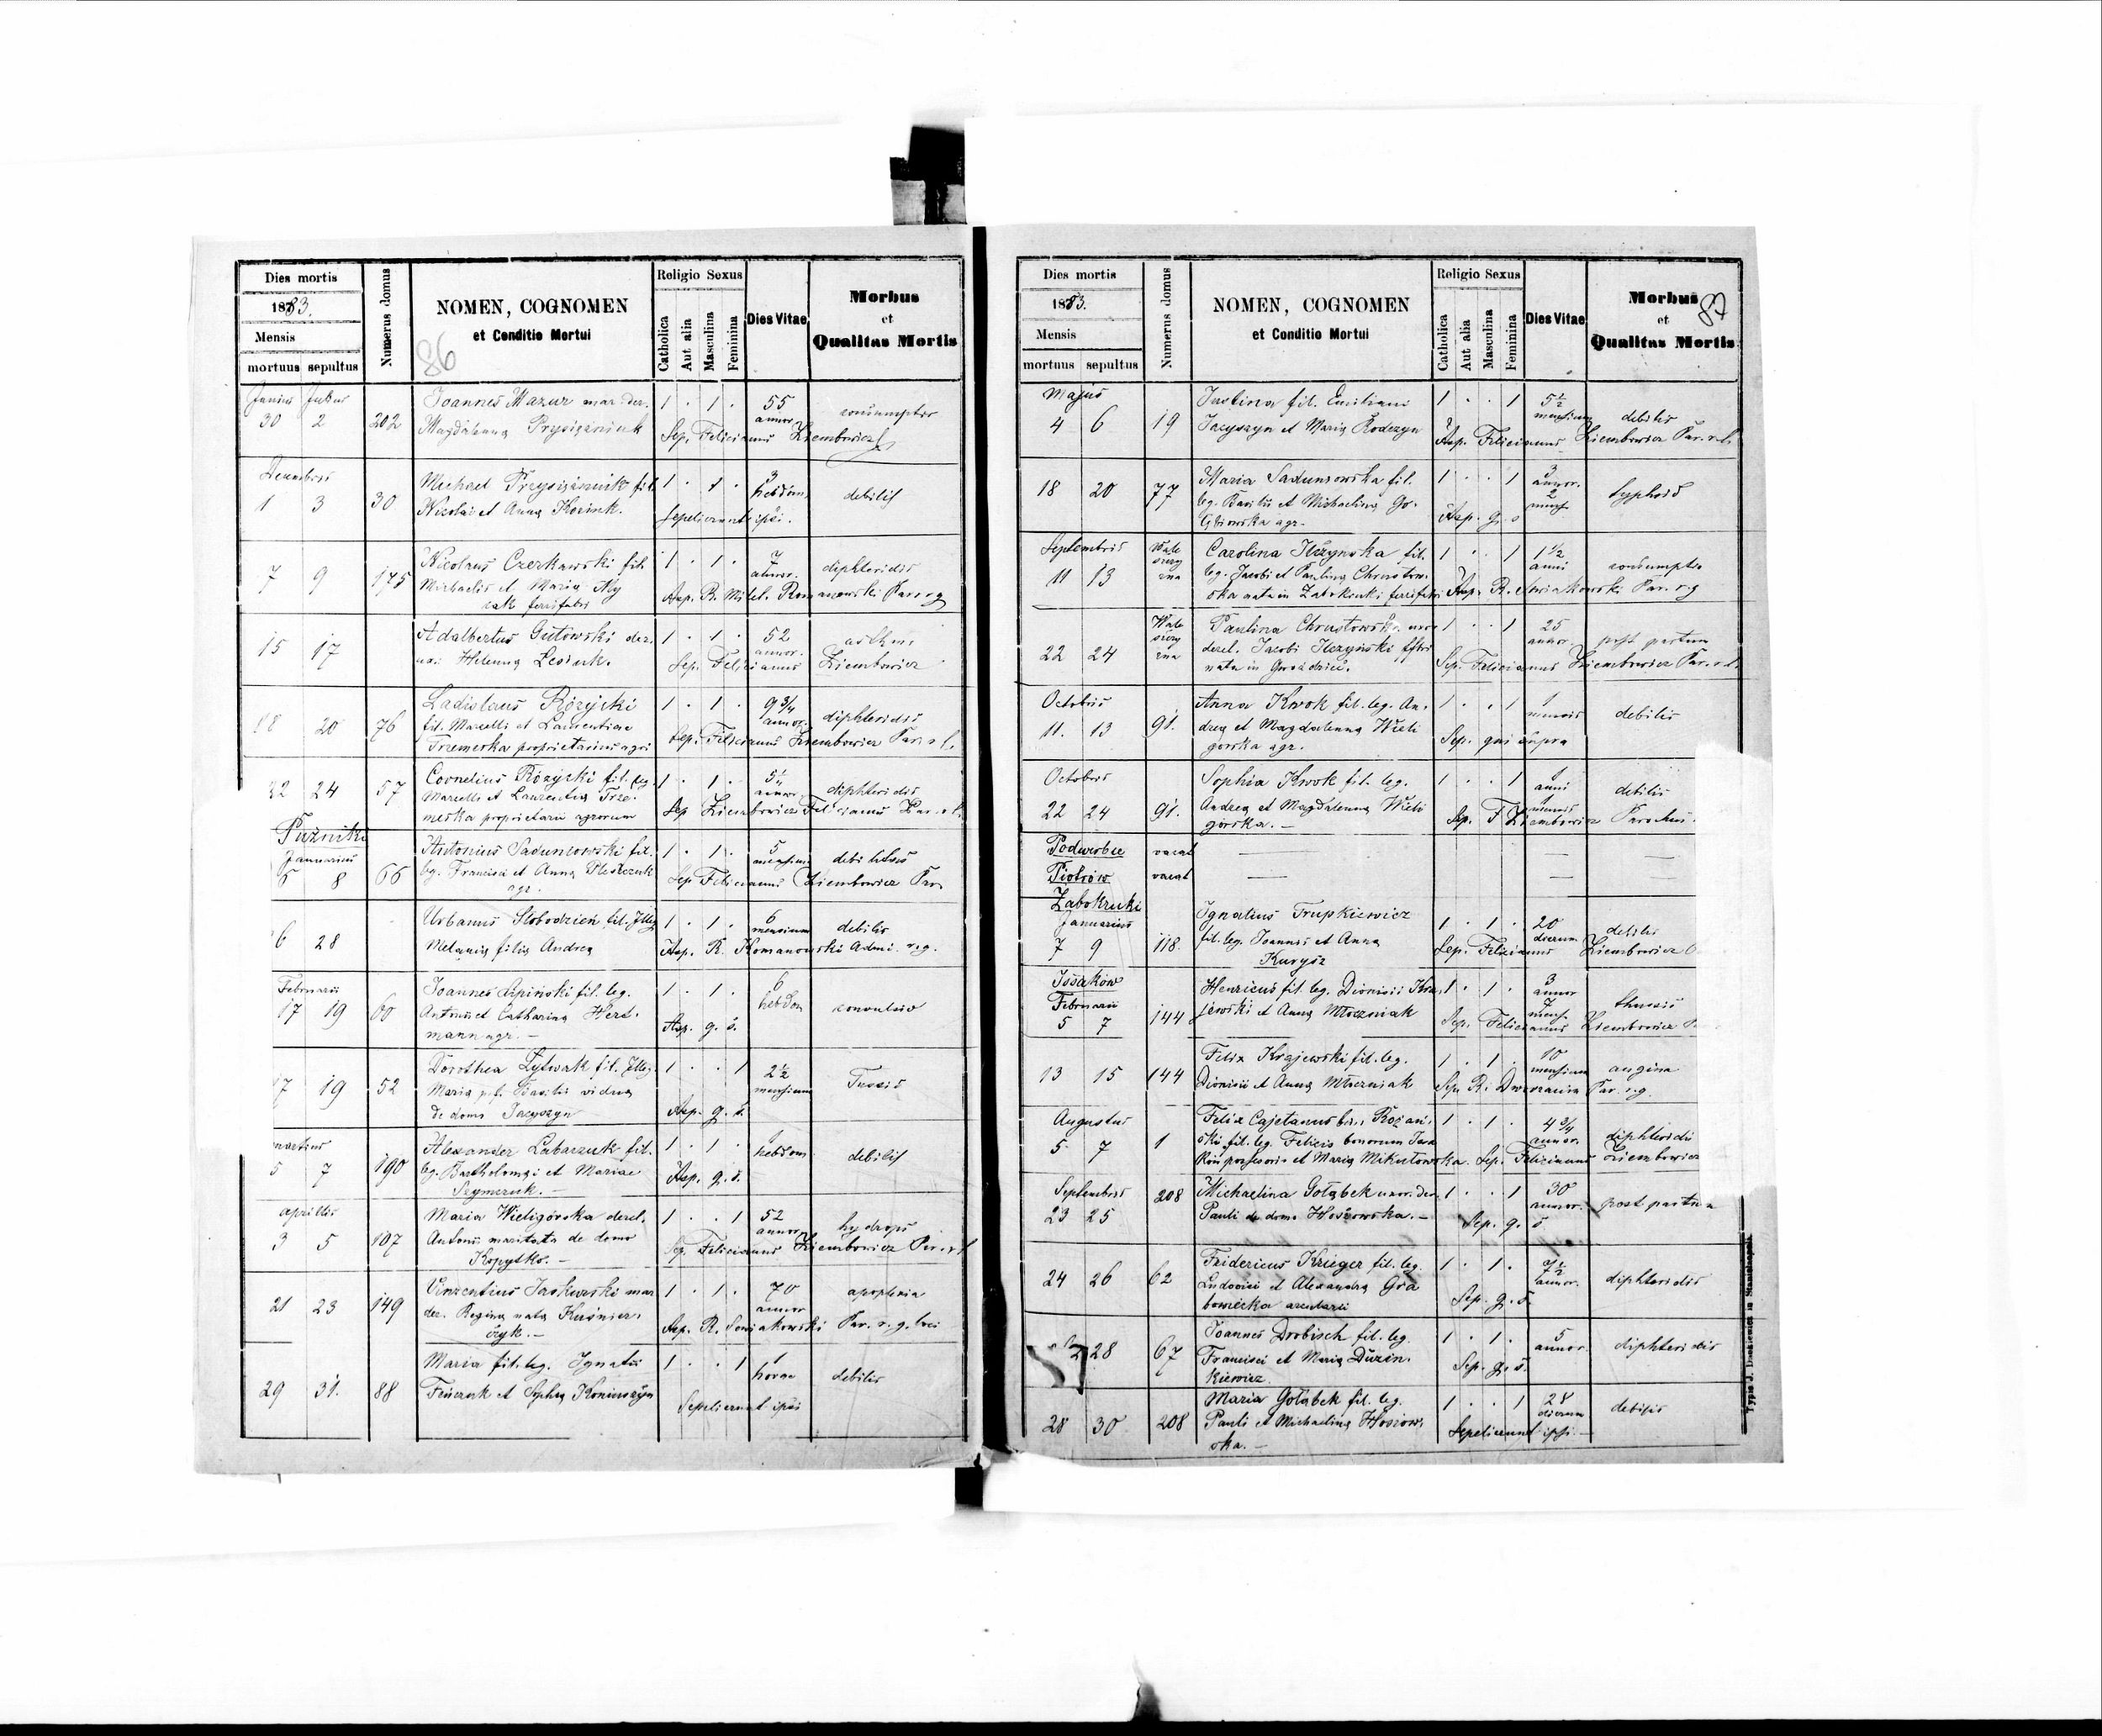 Dies mortis
1883.
Mensis
mortuus sepultus
Numerus domus
NOMEN, COGNOMEN
et Conditio Mortui
86
Religio Sexus
Catholica
Aut alia
Masculina
Feminina
Dies Vitae
Morbus
et
Qualitas Mortis
Junius Julius
30 2 202
Joannes Mazur mar. der.
Magdalena Prysiężniuk
1 . 1 . 55
annor.
Sep. Felicianus Ziembowicz
Decembris
1 3 30
Michael Przysiężniuk fil.
Nicolai et Anna
1 . 1 . 3
hebdom. debilis
sepelierunt ipsi.
7 9 175
Nicolaus Czerkawski fil.
Michaelis et Maria
ferrifabri
1 . 1 . 7
annor. diphteridis
Asp. R. Romanowski Par. r. g.
15 17
Adalbertus Gutowski der.
ux. Helenna Lesiuk.
1 . 1 . 52
annor.
Sep. Felicianus Ziembowicz
18 20 76
Ladislaus Różycki
fil. Marcelli et Laurentina
Trzemeska proprietarius agri
1 . 1 . 9 3/4
annor. diphteridis
Sep. Felicianus Ziembowicz Par. r. l.
22 24 57
Cornelius Różycki fil. leg.
Marcelli et Laurentia Trze-
meska proprietarii agrorum
1 . 1 .
annor. diphteridis
Sep Ziembowicz Felicianus Par. r. l.
Puźniki
Januarius
6 8 66
Antonius Sadunsowski fil.
leg. Francisci et Anna Pleszczuk
agr.
1 . 1 . 5
mensium
Sep Felicianus Ziembowicz Par
6 28
Urbanus Slobodzień fil. Illeg
Melania filia Andrea
1 . 1 . 6
mensium debilis
Asp. R. Romanowski Admi. r. g.
Februarii
17 19 60
Joannes Lipiński fil. leg.
Antonii et Catharina Hert-
mann agr.
1 . 1 . 6
hebdom
Asp. q. s.
17 19 52
Dorothea Lytwak fil. Illeg.
Maria Basilii vidua
de domo Jacyszyn
1 . . 1 2 1/2
mensium Tussis
Asp. q. s.
martius
5 7 190
Alexander Labaczuk fil.
leg. Bartholomei et Mariae
Szymczuk.
1 . 1 .
hebdom debilis
Asp. q. s.
aprilis
3 5 107
Maria Wieligórska derel.
Antonii maritata de domo
Kopytko.
1 . . 1 52
annor hydrops
Sep. Felicianus Ziembowicz Par. r. l
21 23 149
Vinzentius Jaskurski mar
der. Regina nata Kuśnier-
czyk.
1 . 1 . 70
annor apoplexia
Asp. R. Sowiakowski Par. r. g. loci
29 31. 88
Maria fil. leg. Ignatii
Feńczuk et Sophia
1 . . 1 1
horae debilis
Sepelierunt ipsi
Dies mortis
1883.
Mensis
mortuus sepultus
Numerus domus
NOMEN, COGNOMEN
et Conditio Mortui
Religio Sexus
Catholica
Aut alia
Masculina
Feminina
Dies Vitae
Morbus
et
Qualitas Mortis
87
Majus
4 6 19
Justina fil. Emiliani
Jacyszyn et Maria Rodczyn
1 . . 1 5 1/2
mensium debilis
Asp. Felicianus Ziembowicz Par. r. l.
18 20 77
Maria Sadunsowska fil.
leg. Basilii et Michaelina Go-
agr.
1 . . 1 3
annor.
2
mens. typhois
Asp. q. s
Septembris
11 13
Carolina Ilczynska fil.
leg. Jacobi et Paulina Chrustow-
ska nata in Zabokruki ferrifabri
1 . . 1 1 1/2
anni
Asp. R. Sowiakowski Par. r. g
22 24
Paulina Chrustowska uxor
derel. Jacobi Ilczynski
nata in Gwoździec.
1 . . 1 25
annor. post partum
Sep. Felicianus Ziembowicz Par. r. l.
Octobris
11. 13 91.
Anna Kwok fil. leg. An-
drea et Magdalenna Wieli
górska agr.
1 . . 1 1
mensis debilis
Sep. qui supra
Octobris
22 24 91.
Sophia Kwok fil. leg.
Andrea et Magdalenna Wieli
górska.
1 . . 1 1
anni
1
mensis debilis
Sep. F Ziembowicz Parochus.
Podwerbce vacat
Piotrów vacat
Zabokruki
Januarius
7 9 118.
Ignatius Trupkiewicz
fil. leg. Joannis et Anna
Kurysz
1 . 1 . 20
dierum debilis
Sep. Felicianus Ziembowicz
Issaków
Februarii
5 7 144
Henricus fil. leg. Dionisii Kra-
jewski et Anna Młoczniak
1 . 1 . 3
annor
7
mens. thussis
Sep. Felicianus Ziembowicz
13 15 144
Felix Krajewski fil. leg.
Dionisii et Anna Młoczniak
1 . 1 . 10
mensium angina
Sep. R. Par. r. g.
Augustus
5 7 1
Felix Cajetanus Rozań-
ski fil. leg. Felicis bonorum Isa
ków possessoris et Maria Mikułowska.
1 . 1 . 4 3/4
annor. diphteridis
Sep. Felicianus Ziembowicz
Septembris
23 25 208
Michaelina Gołąbek uxor. der.
Pauli de domo Hoszowska.
1 . . 1 30
annor. post partum
Sep. q. s
24 26 62
Fridericus Krieger fil. leg.
Ludovici et Alexandra Gra
bowiecka
1 . 1 . 7 1/2
annor. diphteridis
Sep. q. s.
28 67
Joannes Drobisch fil. leg.
Francisci et Maria Duzin-
kiewicz.
1 . 1 . 5
annor. diphteridis
Sep. q. s.
28 30 208
Maria Gołąbek fil. leg.
Pauli et Michaelina Hosiow-
ska.
1 . . 1 28
dierum debilis
Sepelierunt ipsi